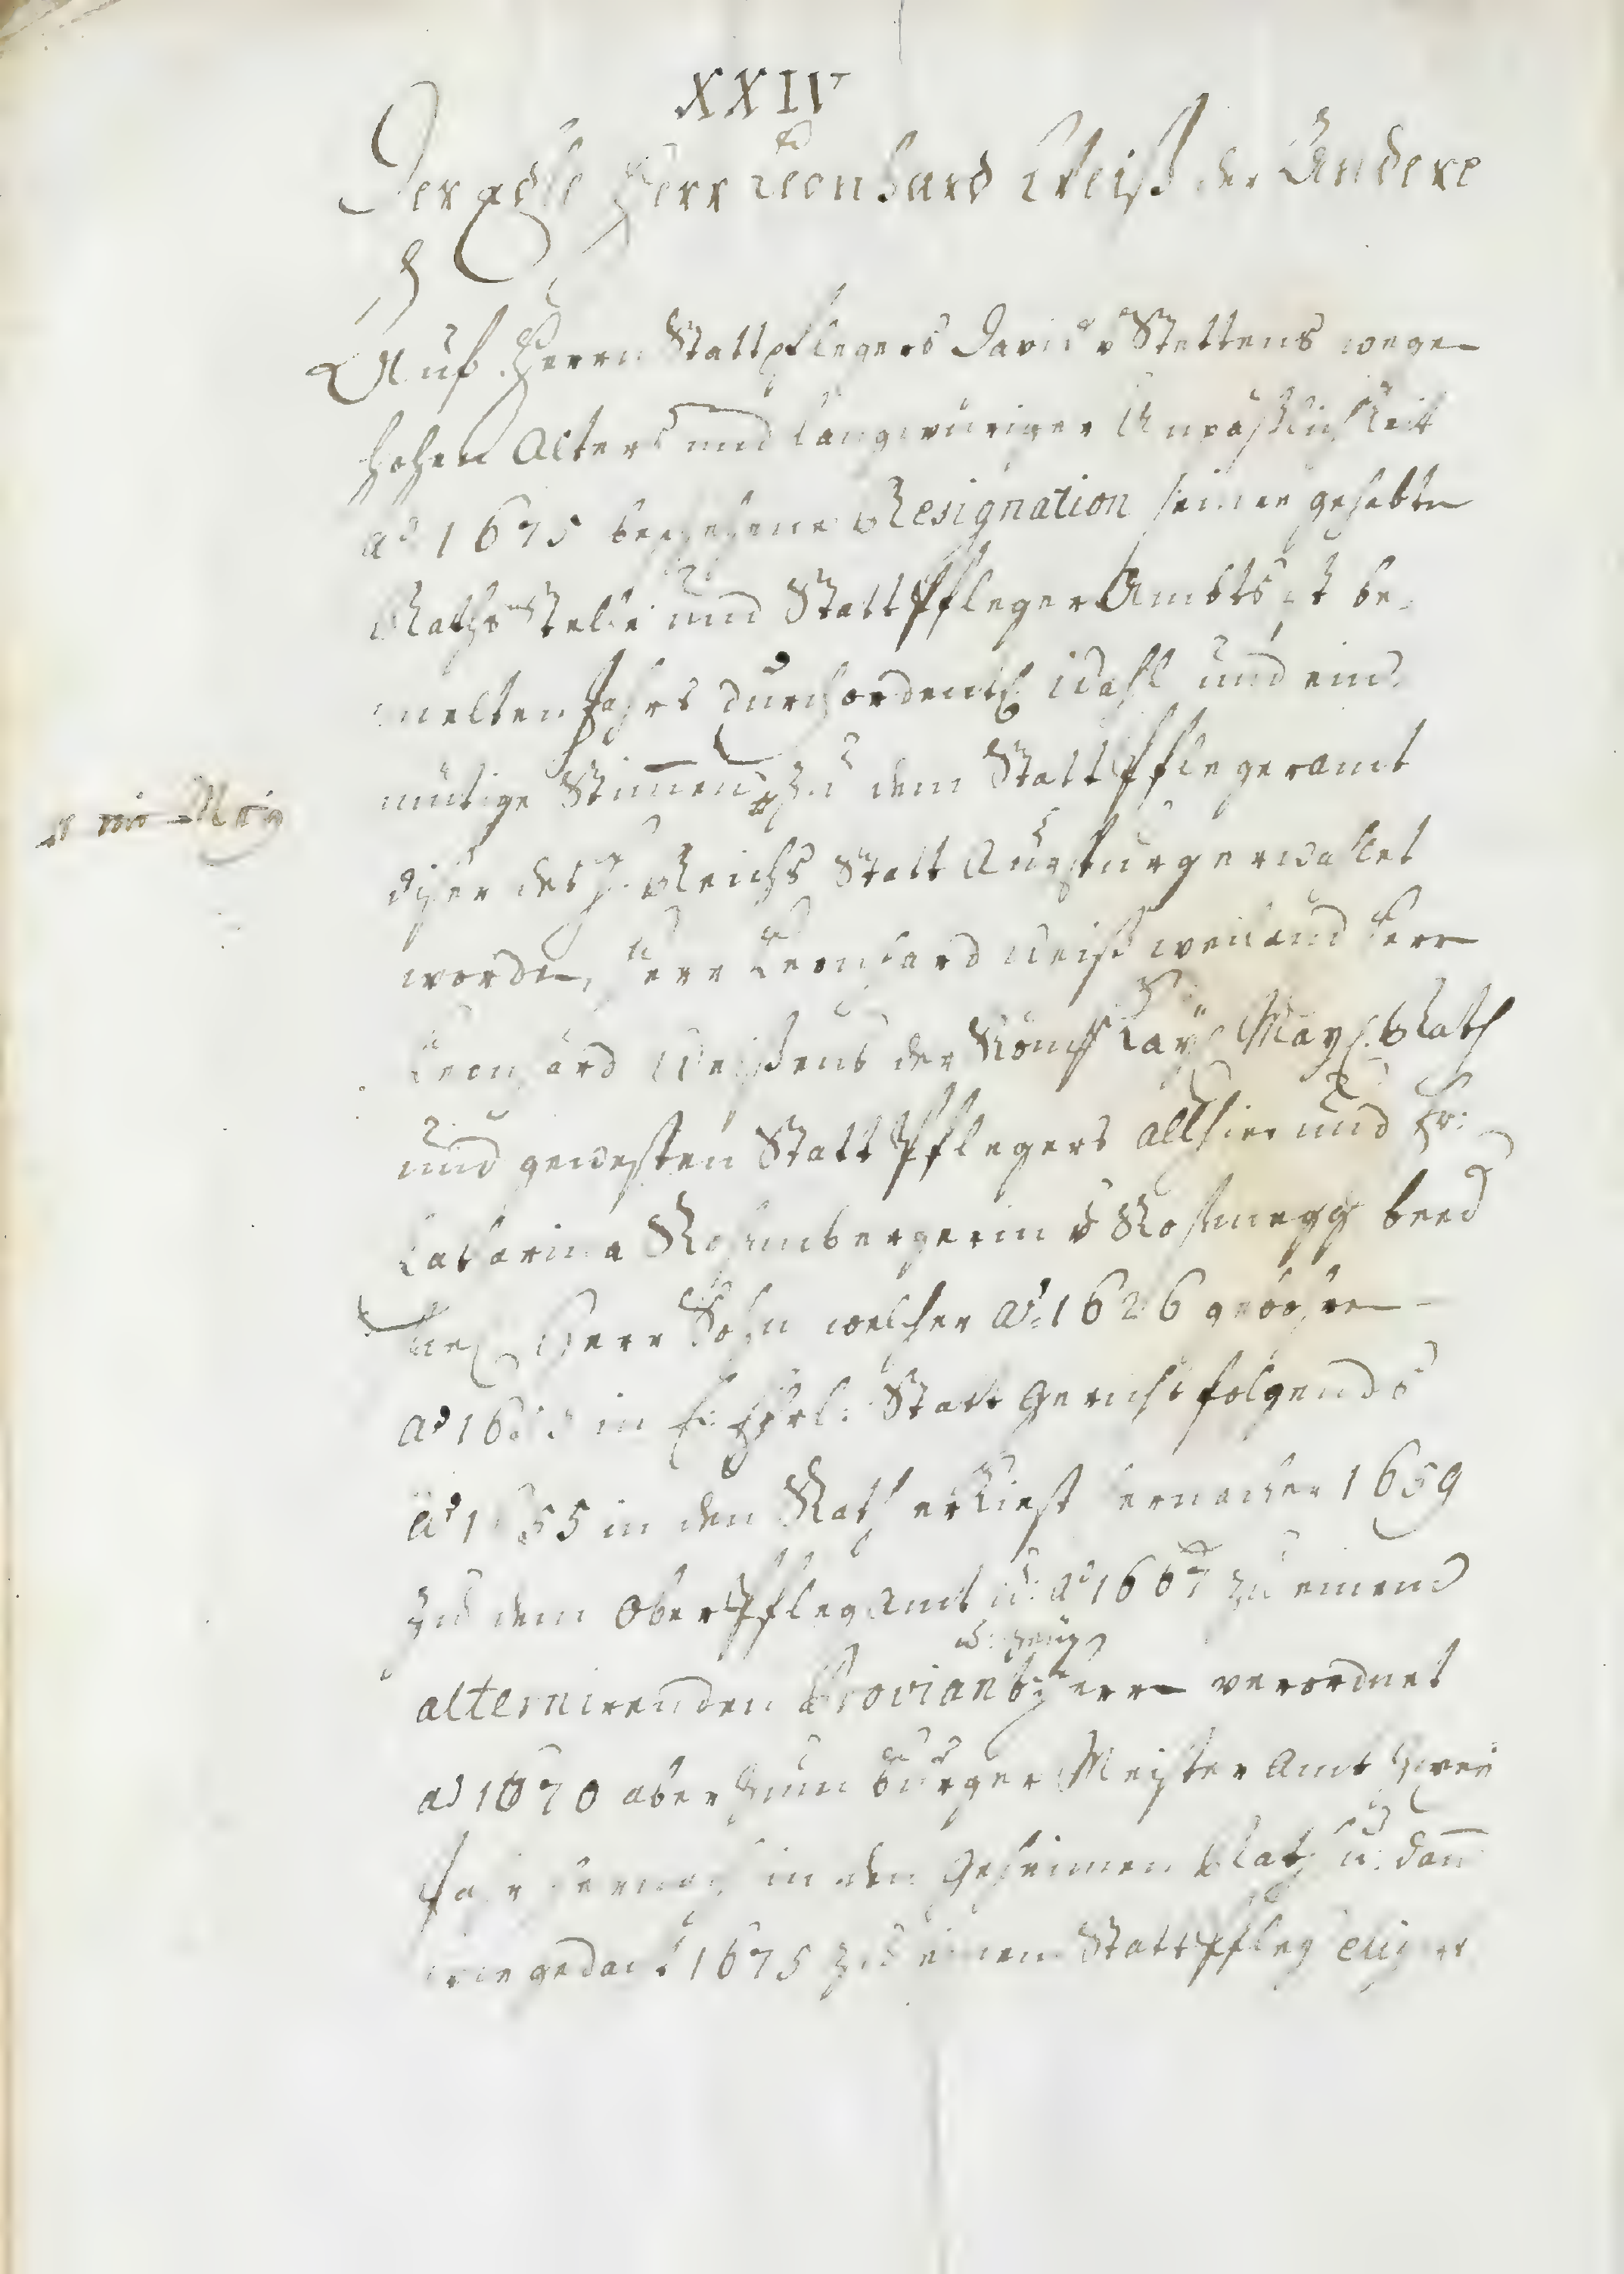 XXIV
Der edle Herr Leonhard Weiß der Andere
Auf Herrn Stattpflegers David v Stettens wegen
hohen Alters und langwüriger Unpäßlichkeit
aō 1675 beschehene Resignation seiner gehabten
Raths Stelle und Statt Pfleger Ambts ist be-
melten Jahrs durch ordentl. Wahl und ein-
mütige Stimmen zu dem Statt Pflegeramt
diser des H. Reichs Statt Augspurg erwählet
worden, Herr Leonhard Weiß weiland Herrn
Leonhard Weißens der Röm. Kay. May. Rath
und gewesten Statt Pflegers allhier und Fr:
Catharina Rosenbergerin v Rosenegg beed
Herr Sohn welcher aō 1626 gebohren
aō 16 in E: Ehrl: Statt Gericht folgends
aō 1655 in den Rath erkiest hernacher 1659
zu dem Ober Pfleg Amt u: aō 1667 zu einem
u: Zeug
alternirenden Proviant Herrn verordnet
aō 1670 aber zum Burger Meister Amt zwei
Jahr hernach in den Geheimen Rath u: dann
wie gedacht 1675 zu einem Statt Pfleger